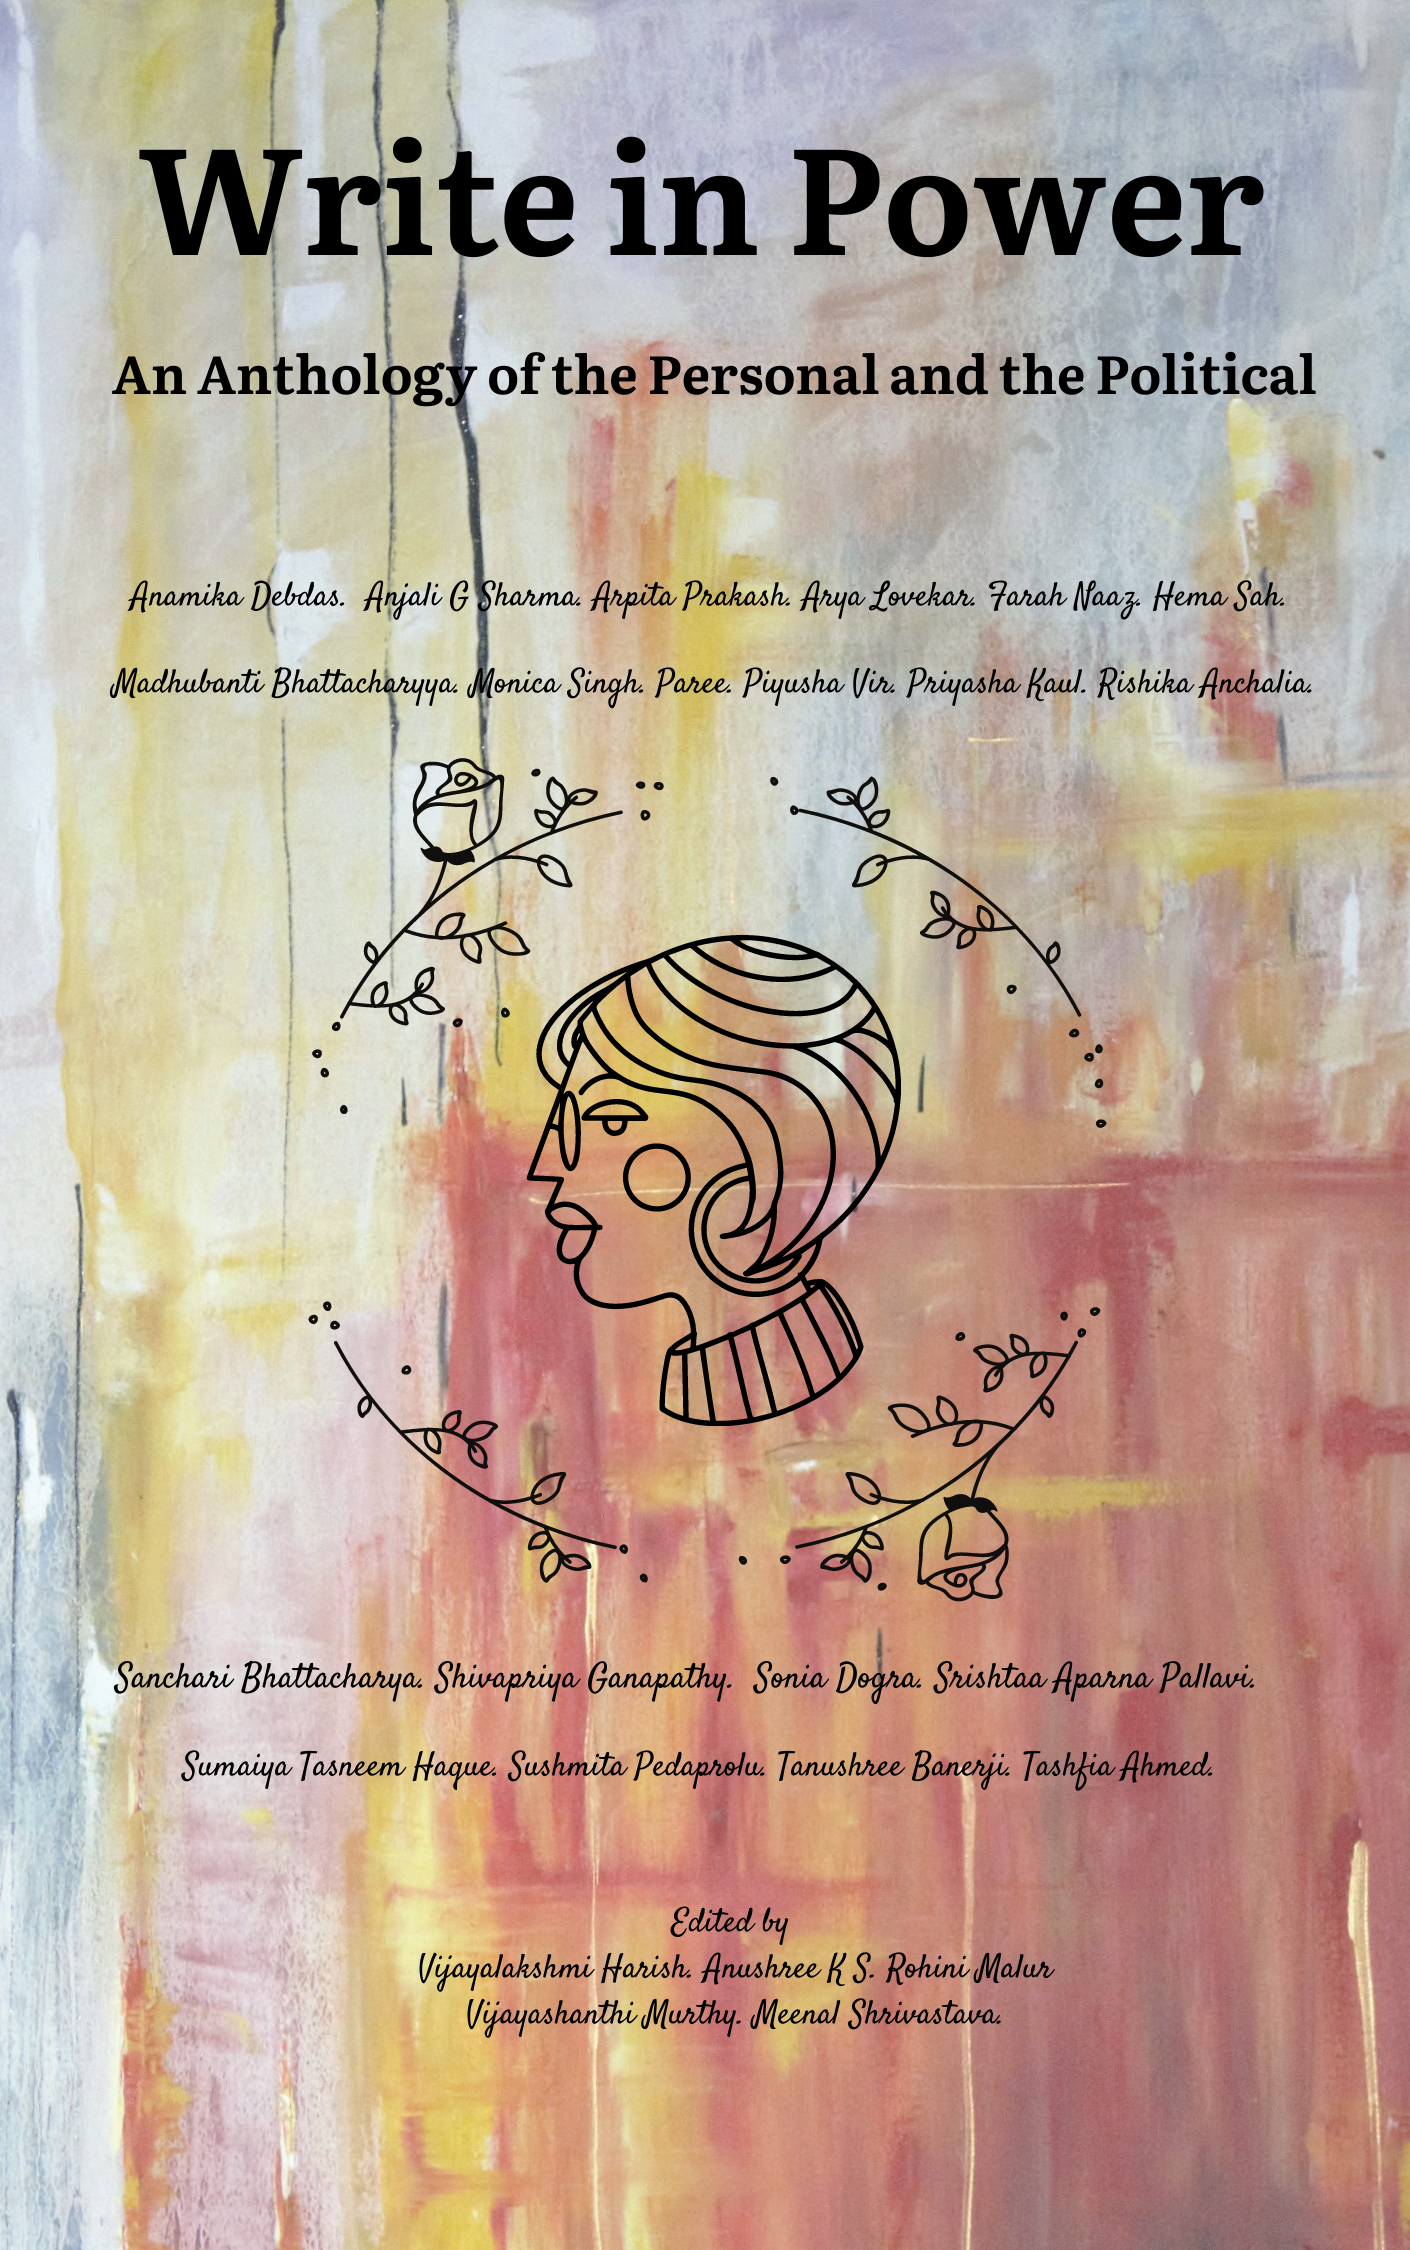 Write in Power
An Anthology of the Personal and the Political
Anamika Debdas. Anjali G Sharma. Arpita Prakash. Arya Lovekar. Farah Naaz. Hema Sah.
Madhubanti Bhattacharyya. Monica Singh. Paree. Piyusha Vir. Priyasha Kaul. Rishika Anchalia.
Sanchari Bhattacharya. Shivapriya Ganapathy. Sonia Dogra. Srishtaa Aparna Pallavi.
Sumaiya Tasneem Haque. Sushmita Pedaprolu. Tanushree Banerji. Tashfia Ahmed.
Edited by
Vijayalakshmi Harish. Anushree K S. Rohini Malur
Vijayashanthi Murthy. Meenal Shrivastava.